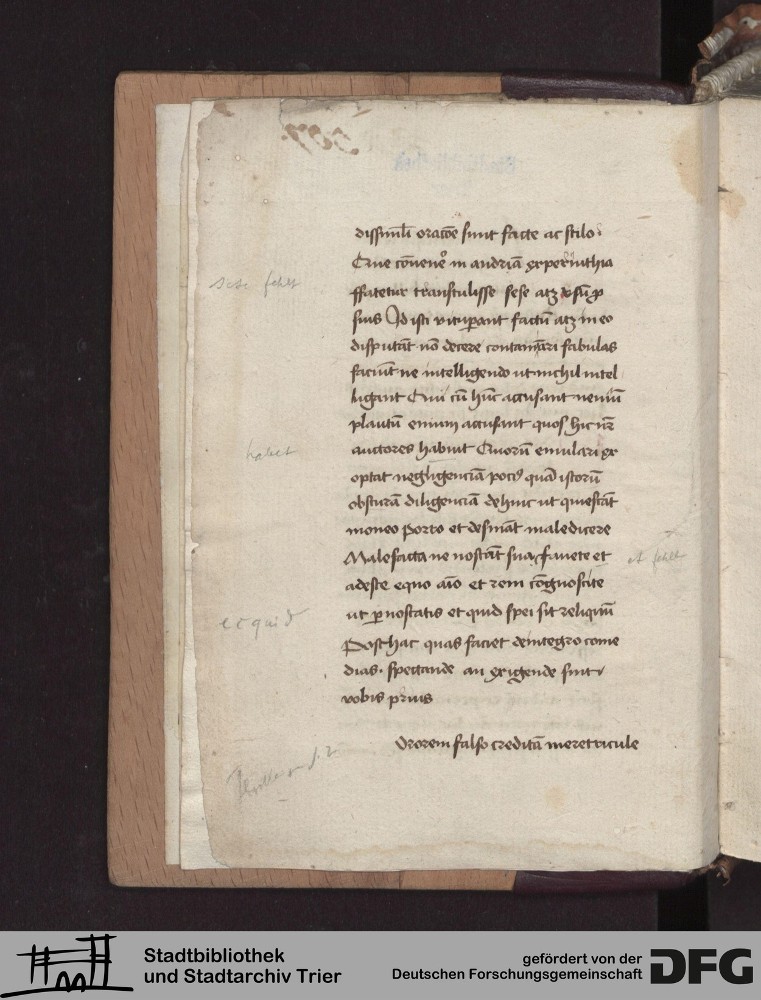 dissimili oracōe sunt facte ac stilo
Que cōuener̄ in andriā ex perinthia
ffatetur transtulisse sese atqꝫ usū p̄
suis Id isti vituperant factū atqꝫ in eo
disputāt nō decere contamīari fabulas
faciūt ne intelligendo ut nichil intel
ligant Qui cū hūc accusant neniū
plautū enniū accusant quos hic nr̄
auctores habuit Quorū emulari ex
optat negligenciā poci9 quā istorū
obscurā diligenciā dehinc ut quiescāt
moneo porro et desināt maledicere
Malefacta ne noscāt sua favete et
adeste equo aīo et rem cōgnoscite
ut pernoscatis et quid spei sit reliquū
Posthac quas faciet deintegro come
dias. spectande an exigende sint
vobis prius
Ororem falso creditā meretricule
fehlt
habet
et fehlt
ecquid
Stadtbibliothek
und Stadtarchiv Trier
gefördert von der
Deutschen Forschungsgemeinschaft
DFG